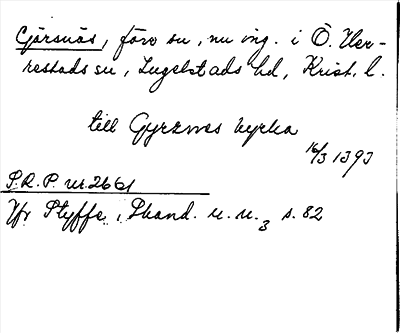 Gärsnäs, förr sn, nu ing. i Ö. Her-
restads sn, Ingelstads hd, Krist. l.
till Gyrznes kyrka
16/3 1393
S.R.P. nr 2661
Jfr Styffe, Skand. u. u. 3 s. 82